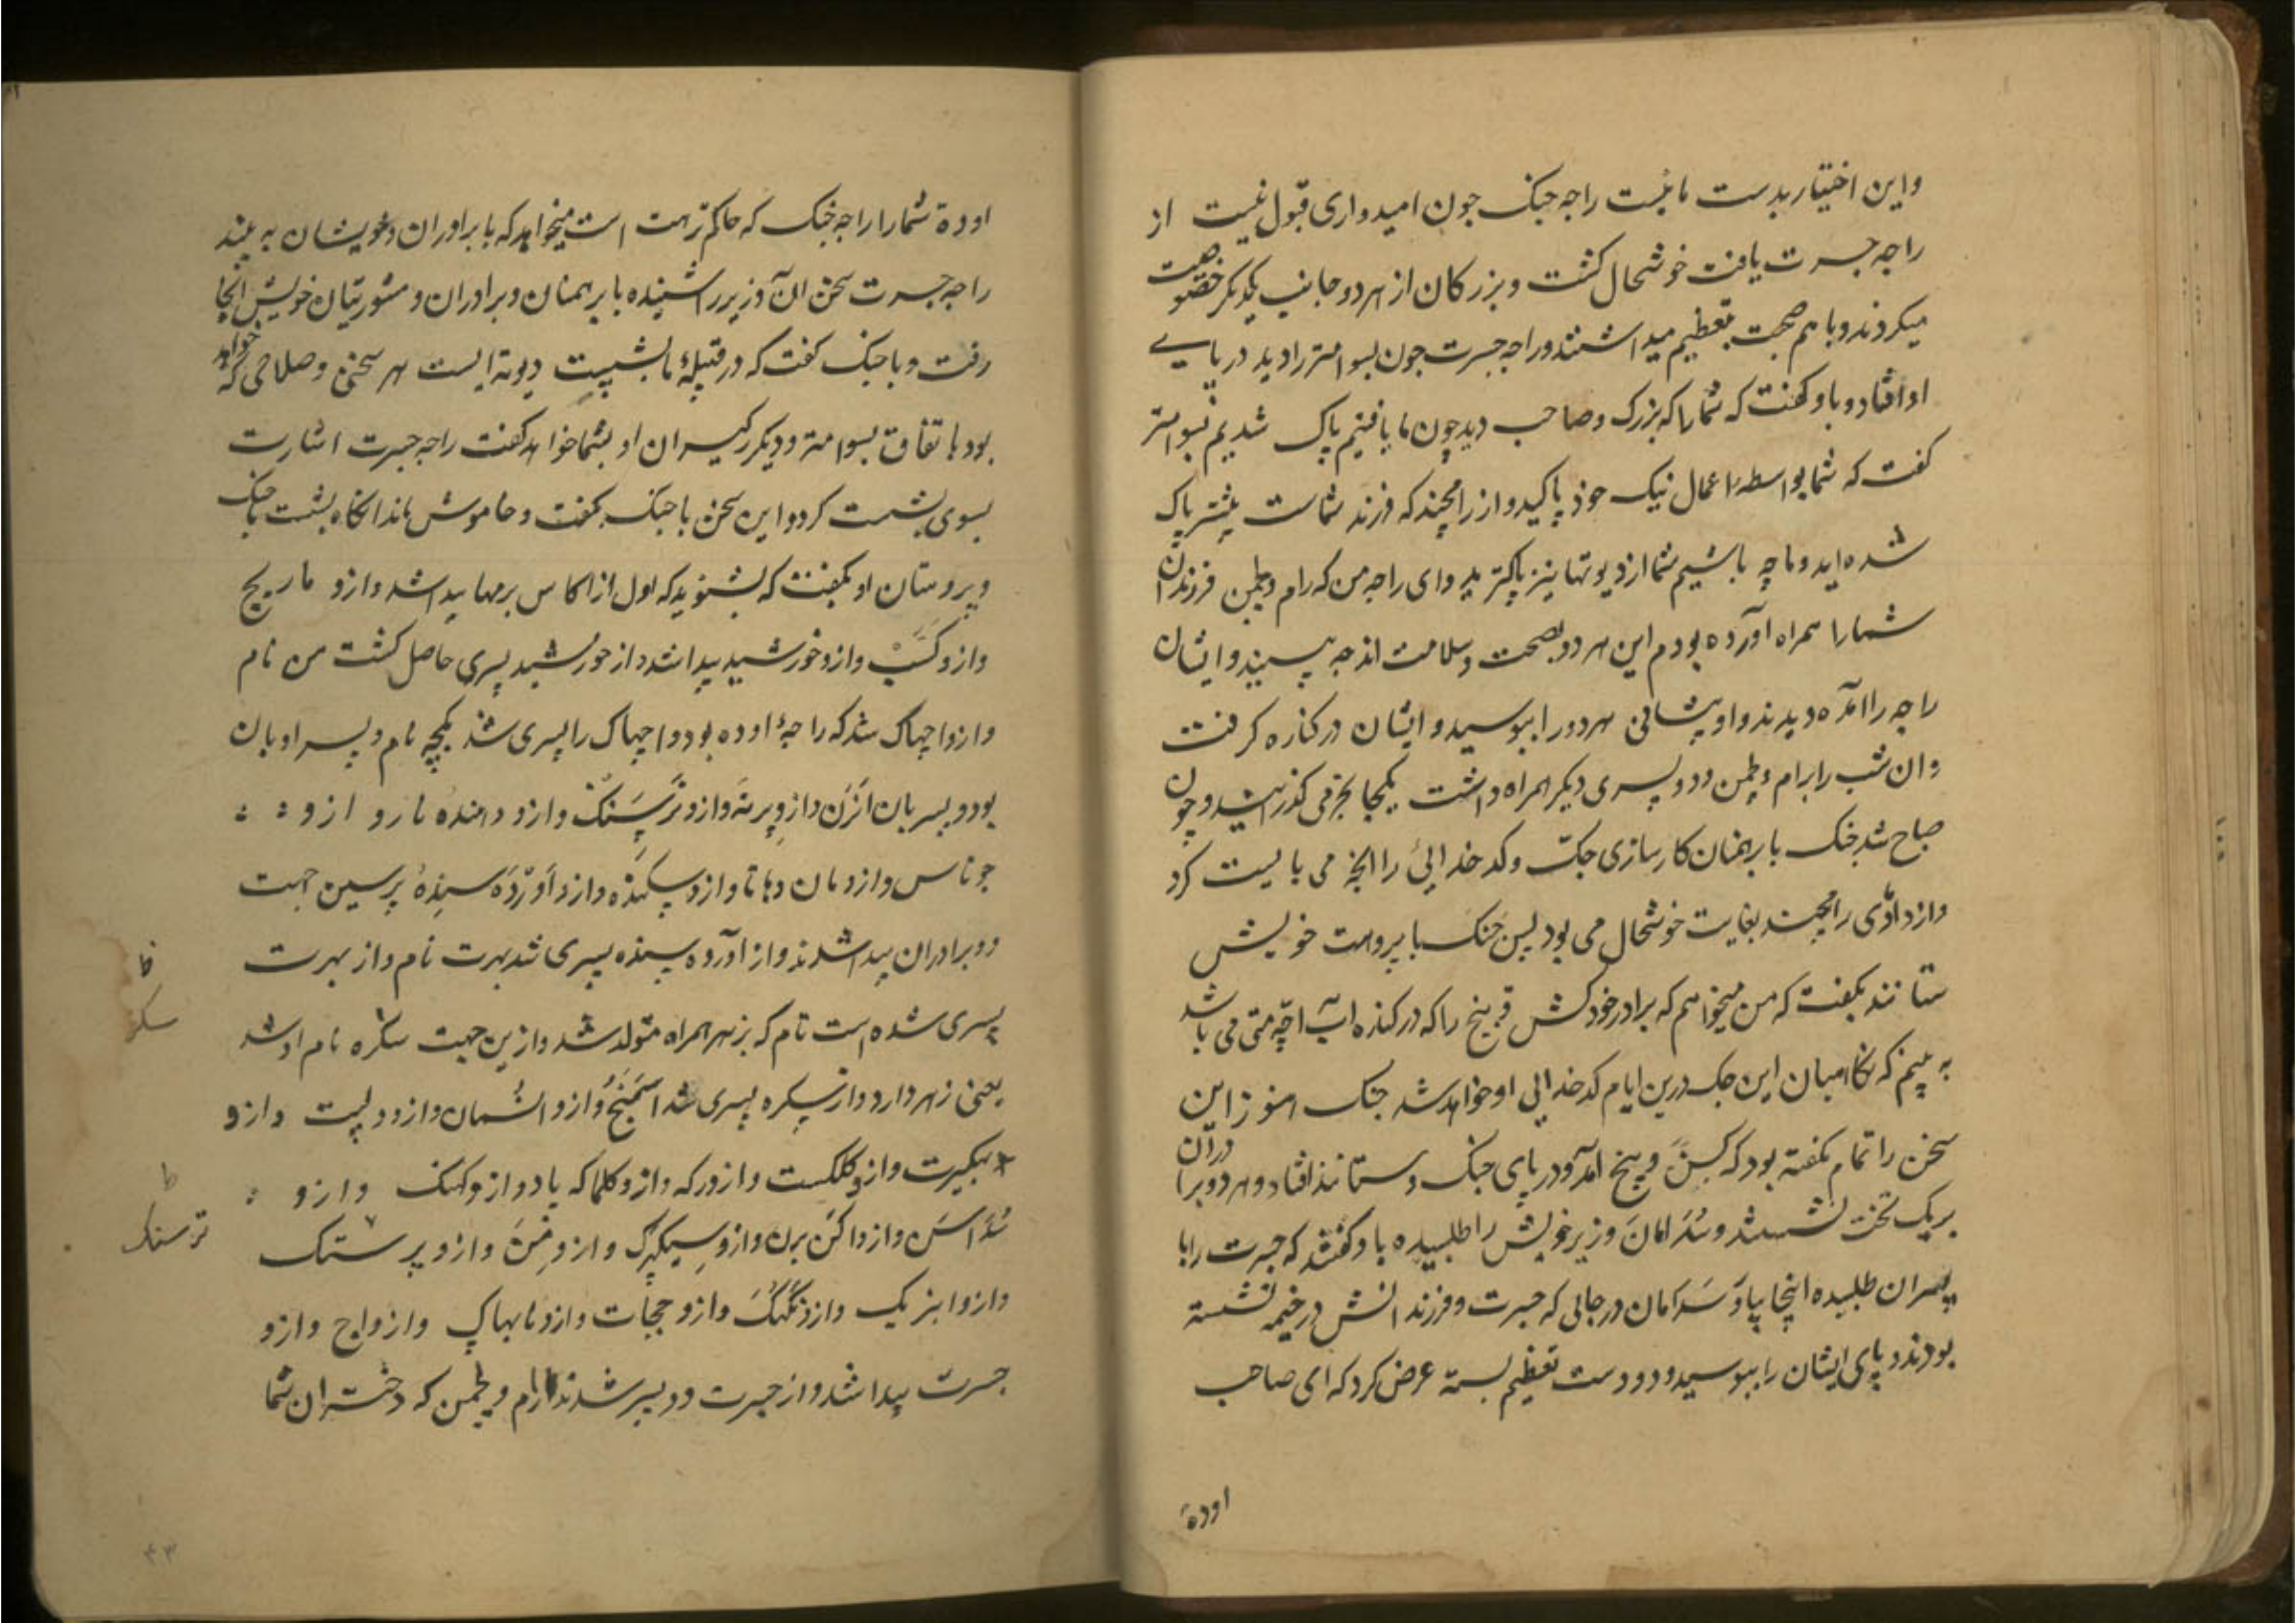 واین اختیار بدست ما نیست راجه جنک چون امیدواری قبول نیست از
راجه جسرت یافت خوشحال کشت و بزرکان از هر دو جانب یکدیکر خصوصیت
میکردند و با هم صحبت بتعظیم میداشتند و راجه جسرت چون بسوامتر را دید در پایے
او افتاد و باو کفت که شما را که بزرک و صاحب دید چون ما یافتیم پاک شدیم بسوامتر
کفت که شما بواسطهٔ اعمال نیک خود پاکید و از رامچند که فرزند شماست بیشتر پاک
شده اید و ما چه باشیم شما از دیوتها نیز پاکتر ید وای راجه من که رام و لچمن فرزندان
شمارا همراه آورده بودم این هر دو بصحت و سلامت اند چه بینید و ایشان
راجه را آمده دیدند و او پیشانی هر دو را ببوسید و ایشان در کناره کرفت
وان شب را برام و لچمن و دو پسری دیکر همراه داشت یکجا بخرمی کذرانید و چون
صباح شد جنک با برهمنان کارسازی جک و کدخدائی را انچه می بایست کرد
وازدادی رامچند بغایت خوشحال می بود پس جنک با پروهت خویش
ستانند بکفت که من میخواهم که برادر خود کش دبنج را که در کناره آب اچه متی می باشد
به بینم که نکاهبان این جک درین ایام کدخدائی او خواهد شد جنک هنوز این
سخن را تمام نکفته بود که کسن دبنج آمد و در پای جنک و ستانند افتاد و هر دو برادران
بر یک تخت نشستند و سدامان وزیر خویش را طلبیده باو کفتند که جسرت را با
پسران طلبیده اینجا بیاو سدامان در جائی که جسرت و فرزندانش در خیمه نشسته
بودند و پای ایشان را ببوسید و دو دست بتعظیم بسته عرض کرد که ای صاحب
اوده
اوده شمارا راجه جنک که حاکم ترهت است میخواهد که با برادران و خویشان به بیند
راجه جسرت سخن آن وزیر را شنیده با برهمنان و برادران و مشورتیان خویش آنجا
رفت و با جنک کفت که در قبیلهٔ ما بشیست دیوته ایست هر سخنی و صلاحی که خواهد
بود باتفاق بسوامتر و دیکر رکیسران او بشما خواهد کفت راجه جسرت اشارت
بسوی بشست کرد و این سخن با جنک بکفت و خاموش ماند انکاه بشست با جنک
و پروستان او بکفت که بشنوید که اول از اکاس برمها پیدا شد وازو ماریچ
وازو کسب وازو خورشید پیدا شد از خورشید پسری حاصل کشت من نام
وازو اچهاک شد که راجهٔ اوده بود و اچهاک را پسری شد کمچه نام و پسر او بان
بود و پسر بان انرن وازو پرته وازو ترسنک وازو دهنده مارو ازو
جوناس وازو مان دهاتا وازو سکنده وازو اورده سنده پرسین اجهت
دو برادران پیدا شدند واز آورده سنده پسری شد بهرت نام واز بهرت
پسری شده است نام که بزهر همراه متولد شد وازین جهت سکره نام او شد
یعنی زهر دارد واز سکره پسری شد اسمنج وازو انسمان وازو دلیپ وازو
بهکیرت وازو ککلست وازو رکه وازو کلماکه پاد وازو کهنک وازو
سداسن وازو اکن برن وازو سیکهرک وازو من وازو پرستک
وازو ابنریک وازو نکهک وازو ججات وازو نابهاک وازو اج وازو
جسرت پیدا شد واز جسرت دو پسر شدند رام و لچمن که دختران شما
سکر
ترسنک
۴۳